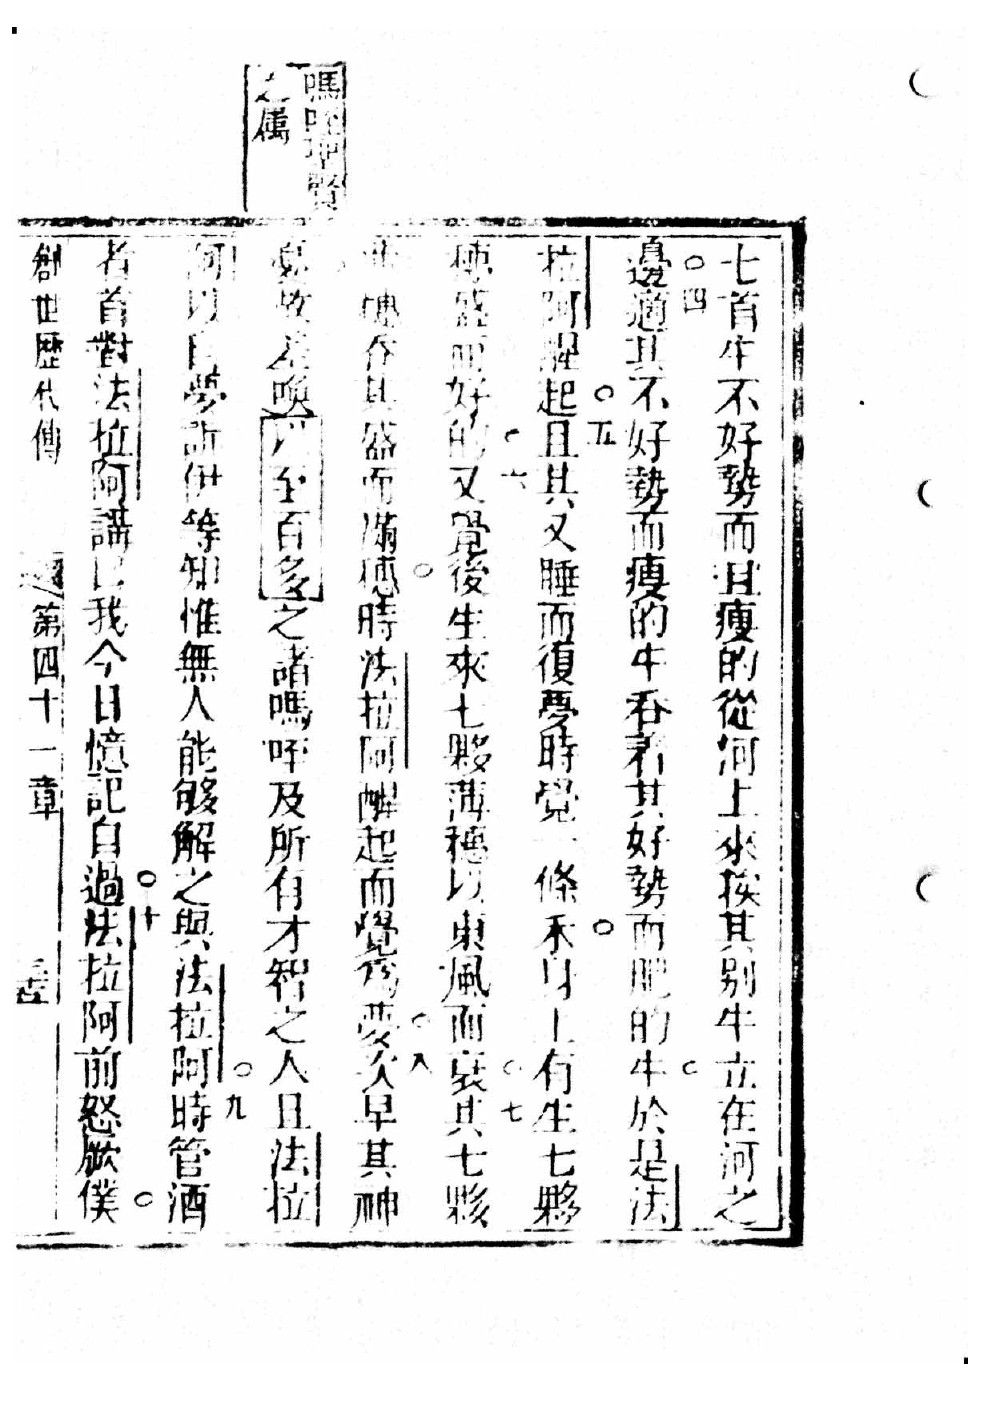 嗎呼賢
之属
七首牛不好勢而且瘦的從河上來挨其别牛立在河之
○四
邊適其不好勢而瘦的牛吞著其好勢而肥的牛於是法
○五
拉阿醒起且其又睡而復夢時覺一條禾身上有生七夥
○六
○七
穗盛而好的又覺後生來七夥薄穗以東風而衰其七夥
○八
薄穗吞其盛而滿穗時法拉阿醒起而覺為夢次早其神
故差喚至百多之諸嗎呼及所有才智之人且法拉
○九
阿以自夢訴伊等知惟無人能够解之與法拉阿時管酒
○十
者首對法拉阿講曰我今日憶記自過法拉阿前怒厥僕
創世歷代傳 第四十一章